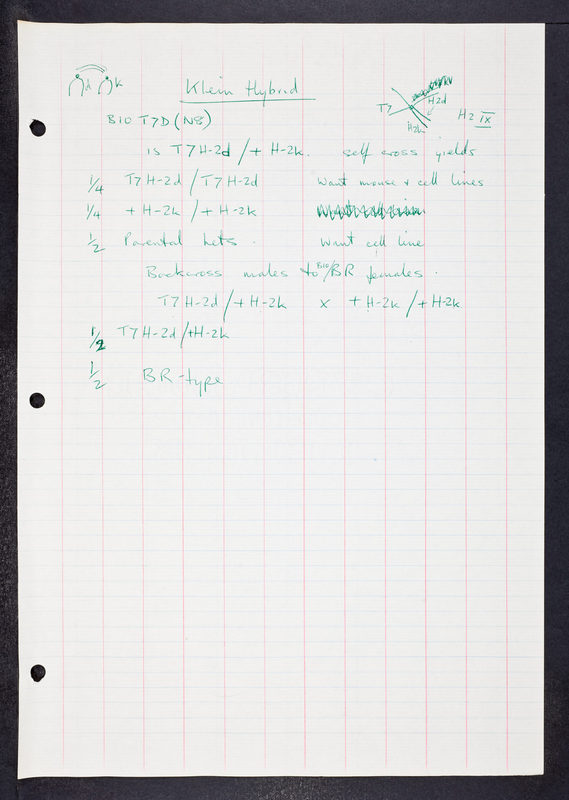 d k Klein Hybrid
T7 H2d H2k H2 IX
B10 T7D (N8)
is T7H-2d / + H-2k. self cross yields
1/4 T7 H-2d / T7 H-2d Want mouse + cell lines
1/4 + H-2k / + H-2k
1/2 Parental hets. Want cell line
Backcross males to B10/BR females.
T7 H-2d / + H-2k x + H-2k / + H-2k
1/2 T7 H-2d / + H-2k
1/2 BR-type